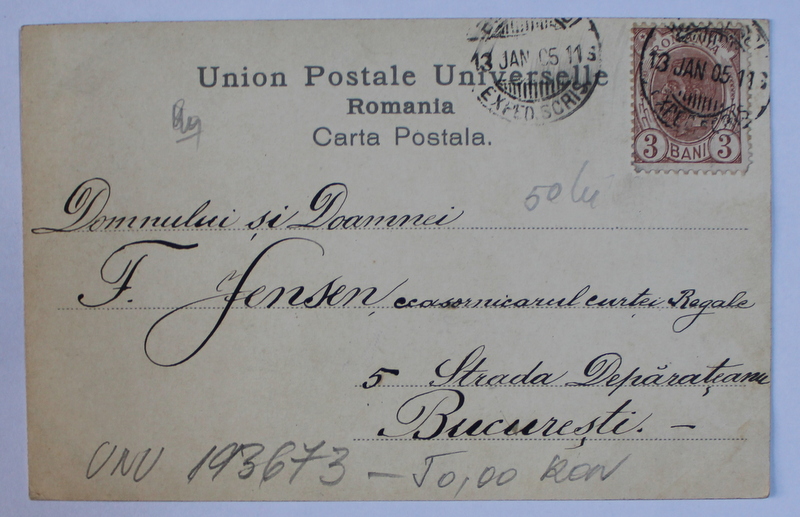 Union Postale Universelle
Romania
Carta Postala.
13 JAN 05 11 S
EXPED. SCRIS
ROMANIA
13 JAN 05 11 S
3 BANI 3
50 lei
Domnului și Doamnei
F. Jensen, ceasornicarul curtei Regale
5 Strada Depărățeanu
București. —
UNU 193673 — 50,00 RON